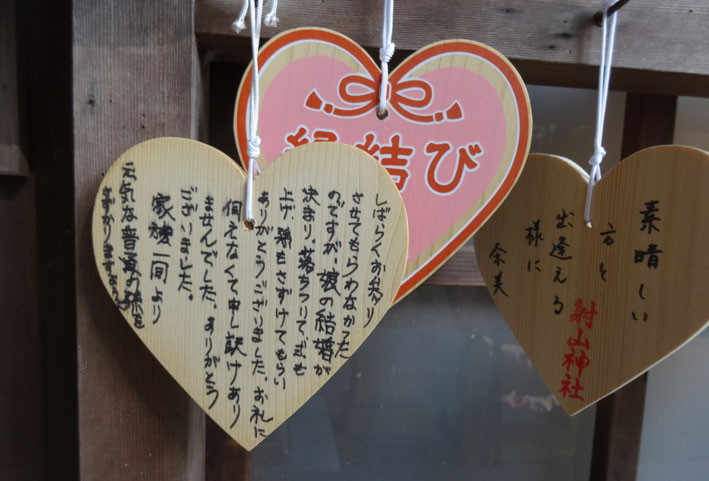 縁結び
しばらくお参り
させてもらわなかった
のですが、娘の結婚が
決まり、落ちついて式も
上げ、孫もさずけてもらい
ありがとうございました。お礼に
伺えなくて申し訳けあり
ませんでした。ありがとう
ございました。
家族一同より
元気な普通の孫を
さずかりますように
素晴しい
方と
出逢える
様に
奈美
射山神社